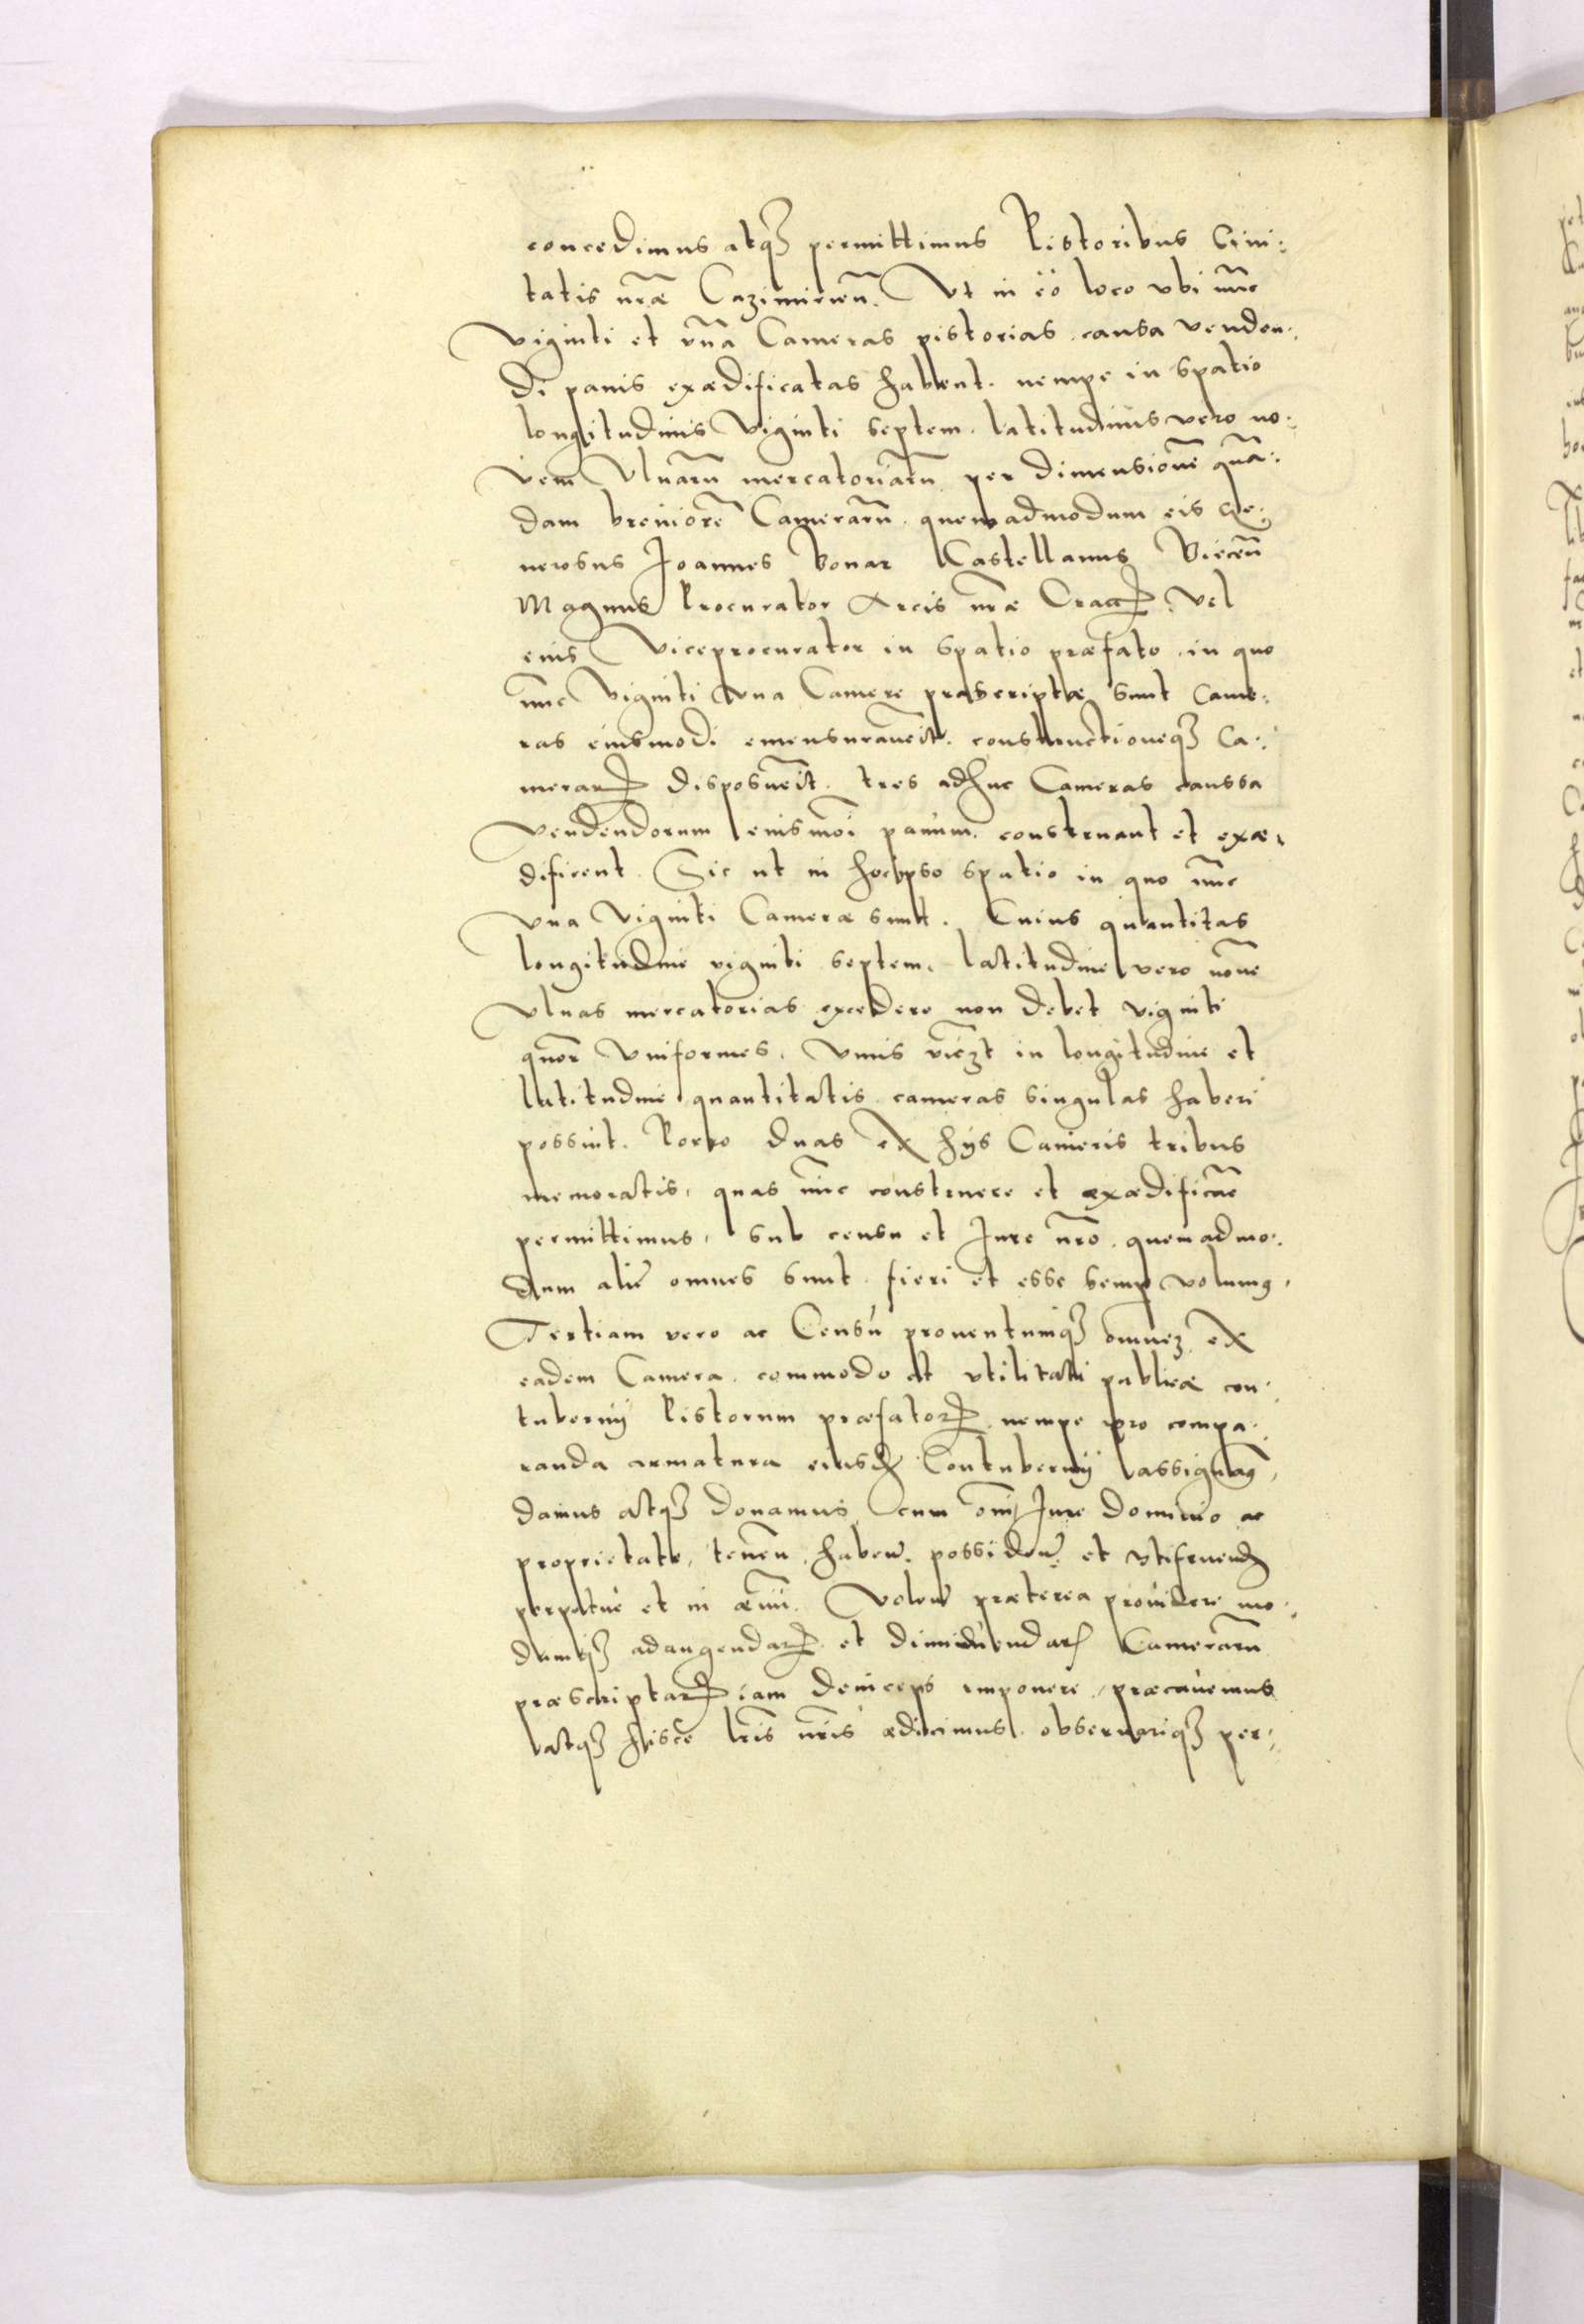 concedimus atqȝ permittimus Pistoribus Ciui:
tatis nr̃æ Cazimirien̄. Vt in eo loco vbi nūc
viginti et vña Cameras pistorias causa venden:
di panis exædificatas habent. nempe in spatio
longitudinis viginti septem. latitudinis vero no:
vem vlnarū mercatoriarū per dimensionē quā:
dam breuiorē Camerarū. quemadmodum eis Ge:
nerosus Joannes Bonar Castellanus Biecen̄
Magnus Procurator Arcis nr̃æ Cracꝝ. Vel
eius Viceprocurator in spatio præfato in quo
nūc viginti vna Camere præscriptæ sunt Came:
ras eiusmodi emensurauerit. constructioneqȝ Ca:
merarꝝ disposuerit. tres adhuc Cameras caussa
vendendorum eiusmōi panum. construant et exæ:
dificent. Sic ut in hocipso spatio in quo nūc
vna viginti Cameræ sunt. Cuius quantitas
longitudine viginti septem. latitudine vero nouē
vlnas mercatorias excedere non debet viginti
quor̃ vniformes. vnius viczt in longitudine et
latitudine quantitatis cameras singulas haberi
possint. Porro duas ex hijs Cameris tribus
memoratis, quas nūc construere et exædificar̃e
permittimus, sub censu et Jure nr̃o. quemadmo:
dum aliæ omnes sunt. fieri et esse semp volumꝰ.
Tertiam vero ac Censū prouentumqȝ omnez ex
eadem Camera. commodo et vtilitati publicæ con:
tubernij Pistorum præfatorꝝ. nempe pro compa:
randa armatura eiusdꝫ Contubernij assignamꝰ,
damus atqȝ donamus cum om̃i Jure dominio ac
proprietate, tenen̄. haben̄. possiden̄. et vtifruendꝫ
perpetue et in æuū. Volen̄ præterea prouidere mo:
dumqȝ adaugendarꝝ et diminuendarꝝ Camerarū
præscriptarꝝ iam deinceps imponere, præcauemus
atqȝ hisce lr̃is nr̃is ædicimus. obseruariqȝ per: